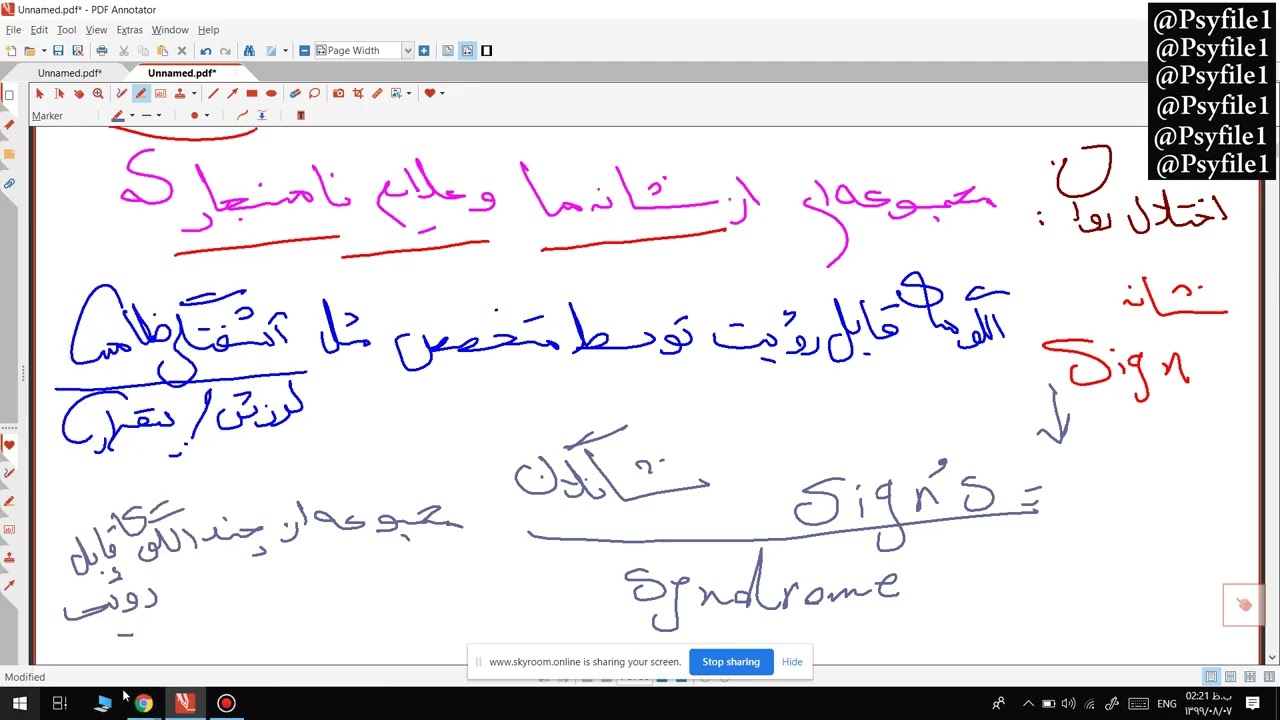 Unnamed.pdf* - PDF Annotator
File Edit Tool View Extras Window Help
Page Width
Unnamed.pdf* Unnamed.pdf*
Marker
@Psyfile1
@Psyfile1
@Psyfile1
@Psyfile1
@Psyfile1
@Psyfile1
اختلال روان :
مجموعه ای از نشانه ها و علایم نابهنجار
نشانه
Sign
الگوهای قابل رویت توسط متخصص مثل آشفتگی ظاهر
لرزش / بیقراری
Sign's =
نشانگان
Syndrome
مجموعه ای از چند الگوی قابل
رویت
www.skyroom.online is sharing your screen. Stop sharing Hide
Modified
ENG
02:21 ب.ظ
۱۳۹۹/۰۸/۰۷